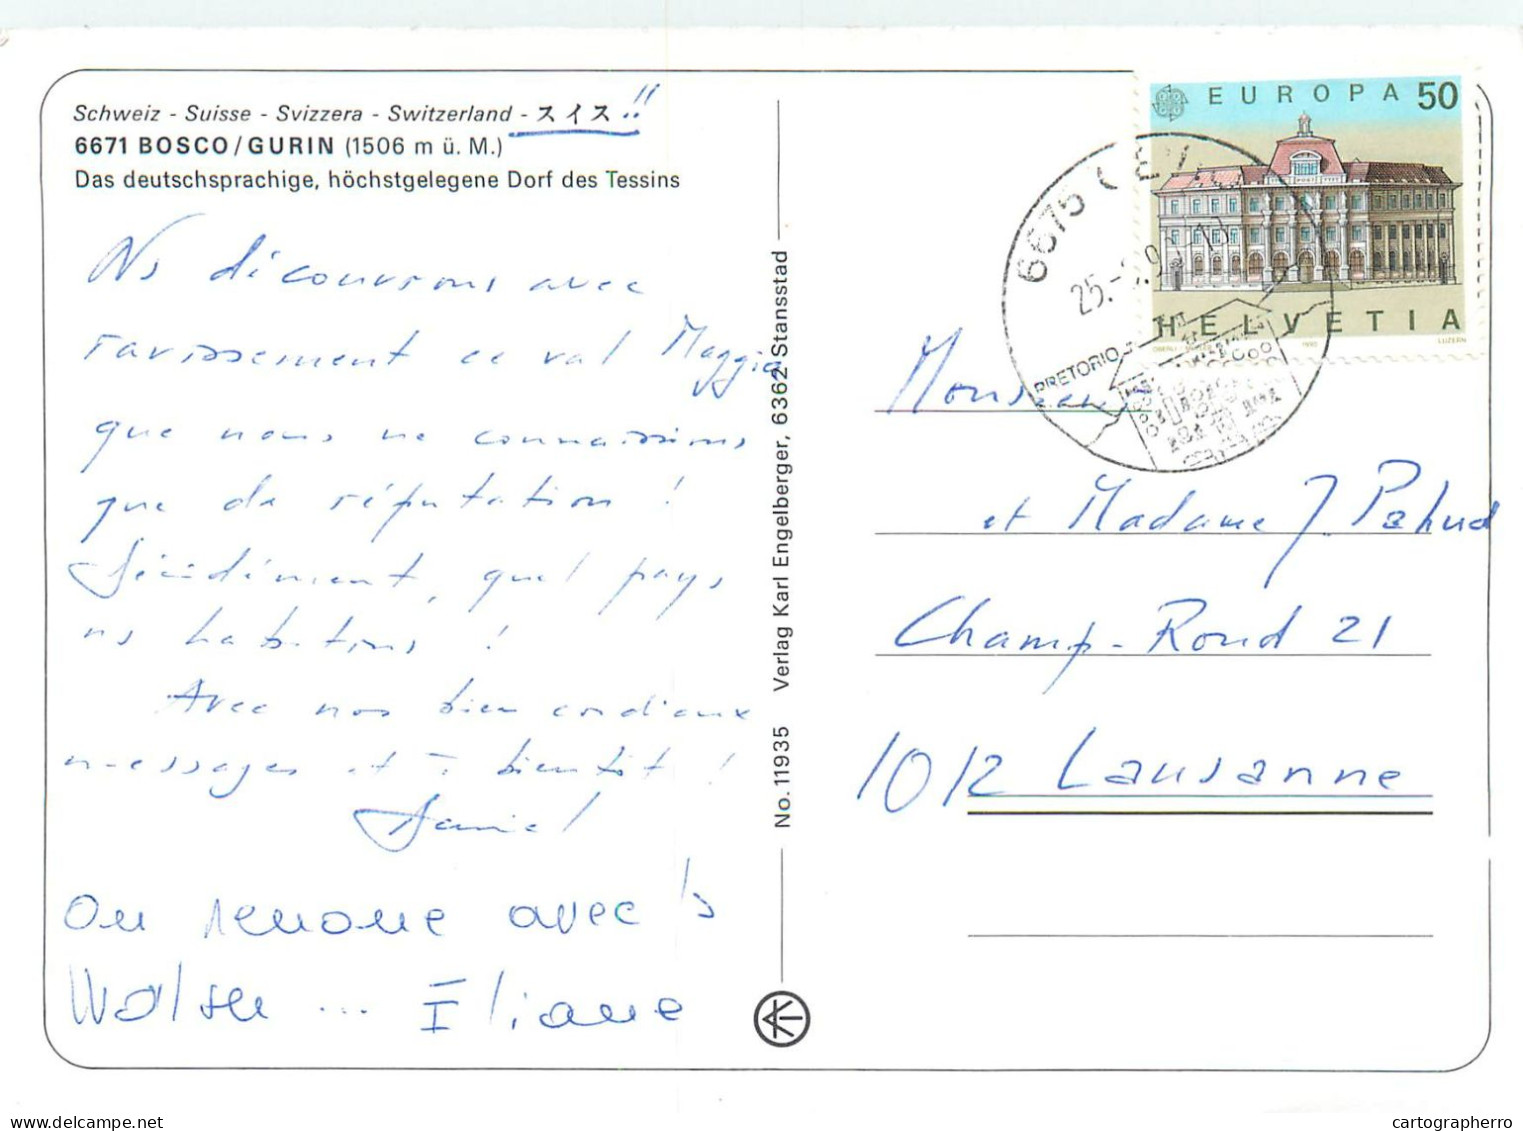 Schweiz - Suisse - Svizzera - Switzerland - スイス !!
6671 BOSCO/GURIN (1506 m ü. M.)
Das deutschsprachige, höchstgelegene Dorf des Tessins
Ns découvrons avec
ravissement ce val Maggia
que nous ne connaissions
que de réputation !
Décidément, quel pays
ns habitons !
Avec nos bien cordiaux
messages et à bientôt !
Daniel
On renoue avec ls
Walser ... Eliane
No. 11935 Verlag Karl Engelberger, 6362 Stansstad
EUROPA 50
HELVETIA
LUZERN
1990
6675 CEV
25.-
PRETORIO
Monsieur
et Madame J. Pahud
Champ-Rond 21
1012 Lausanne
cartographerro